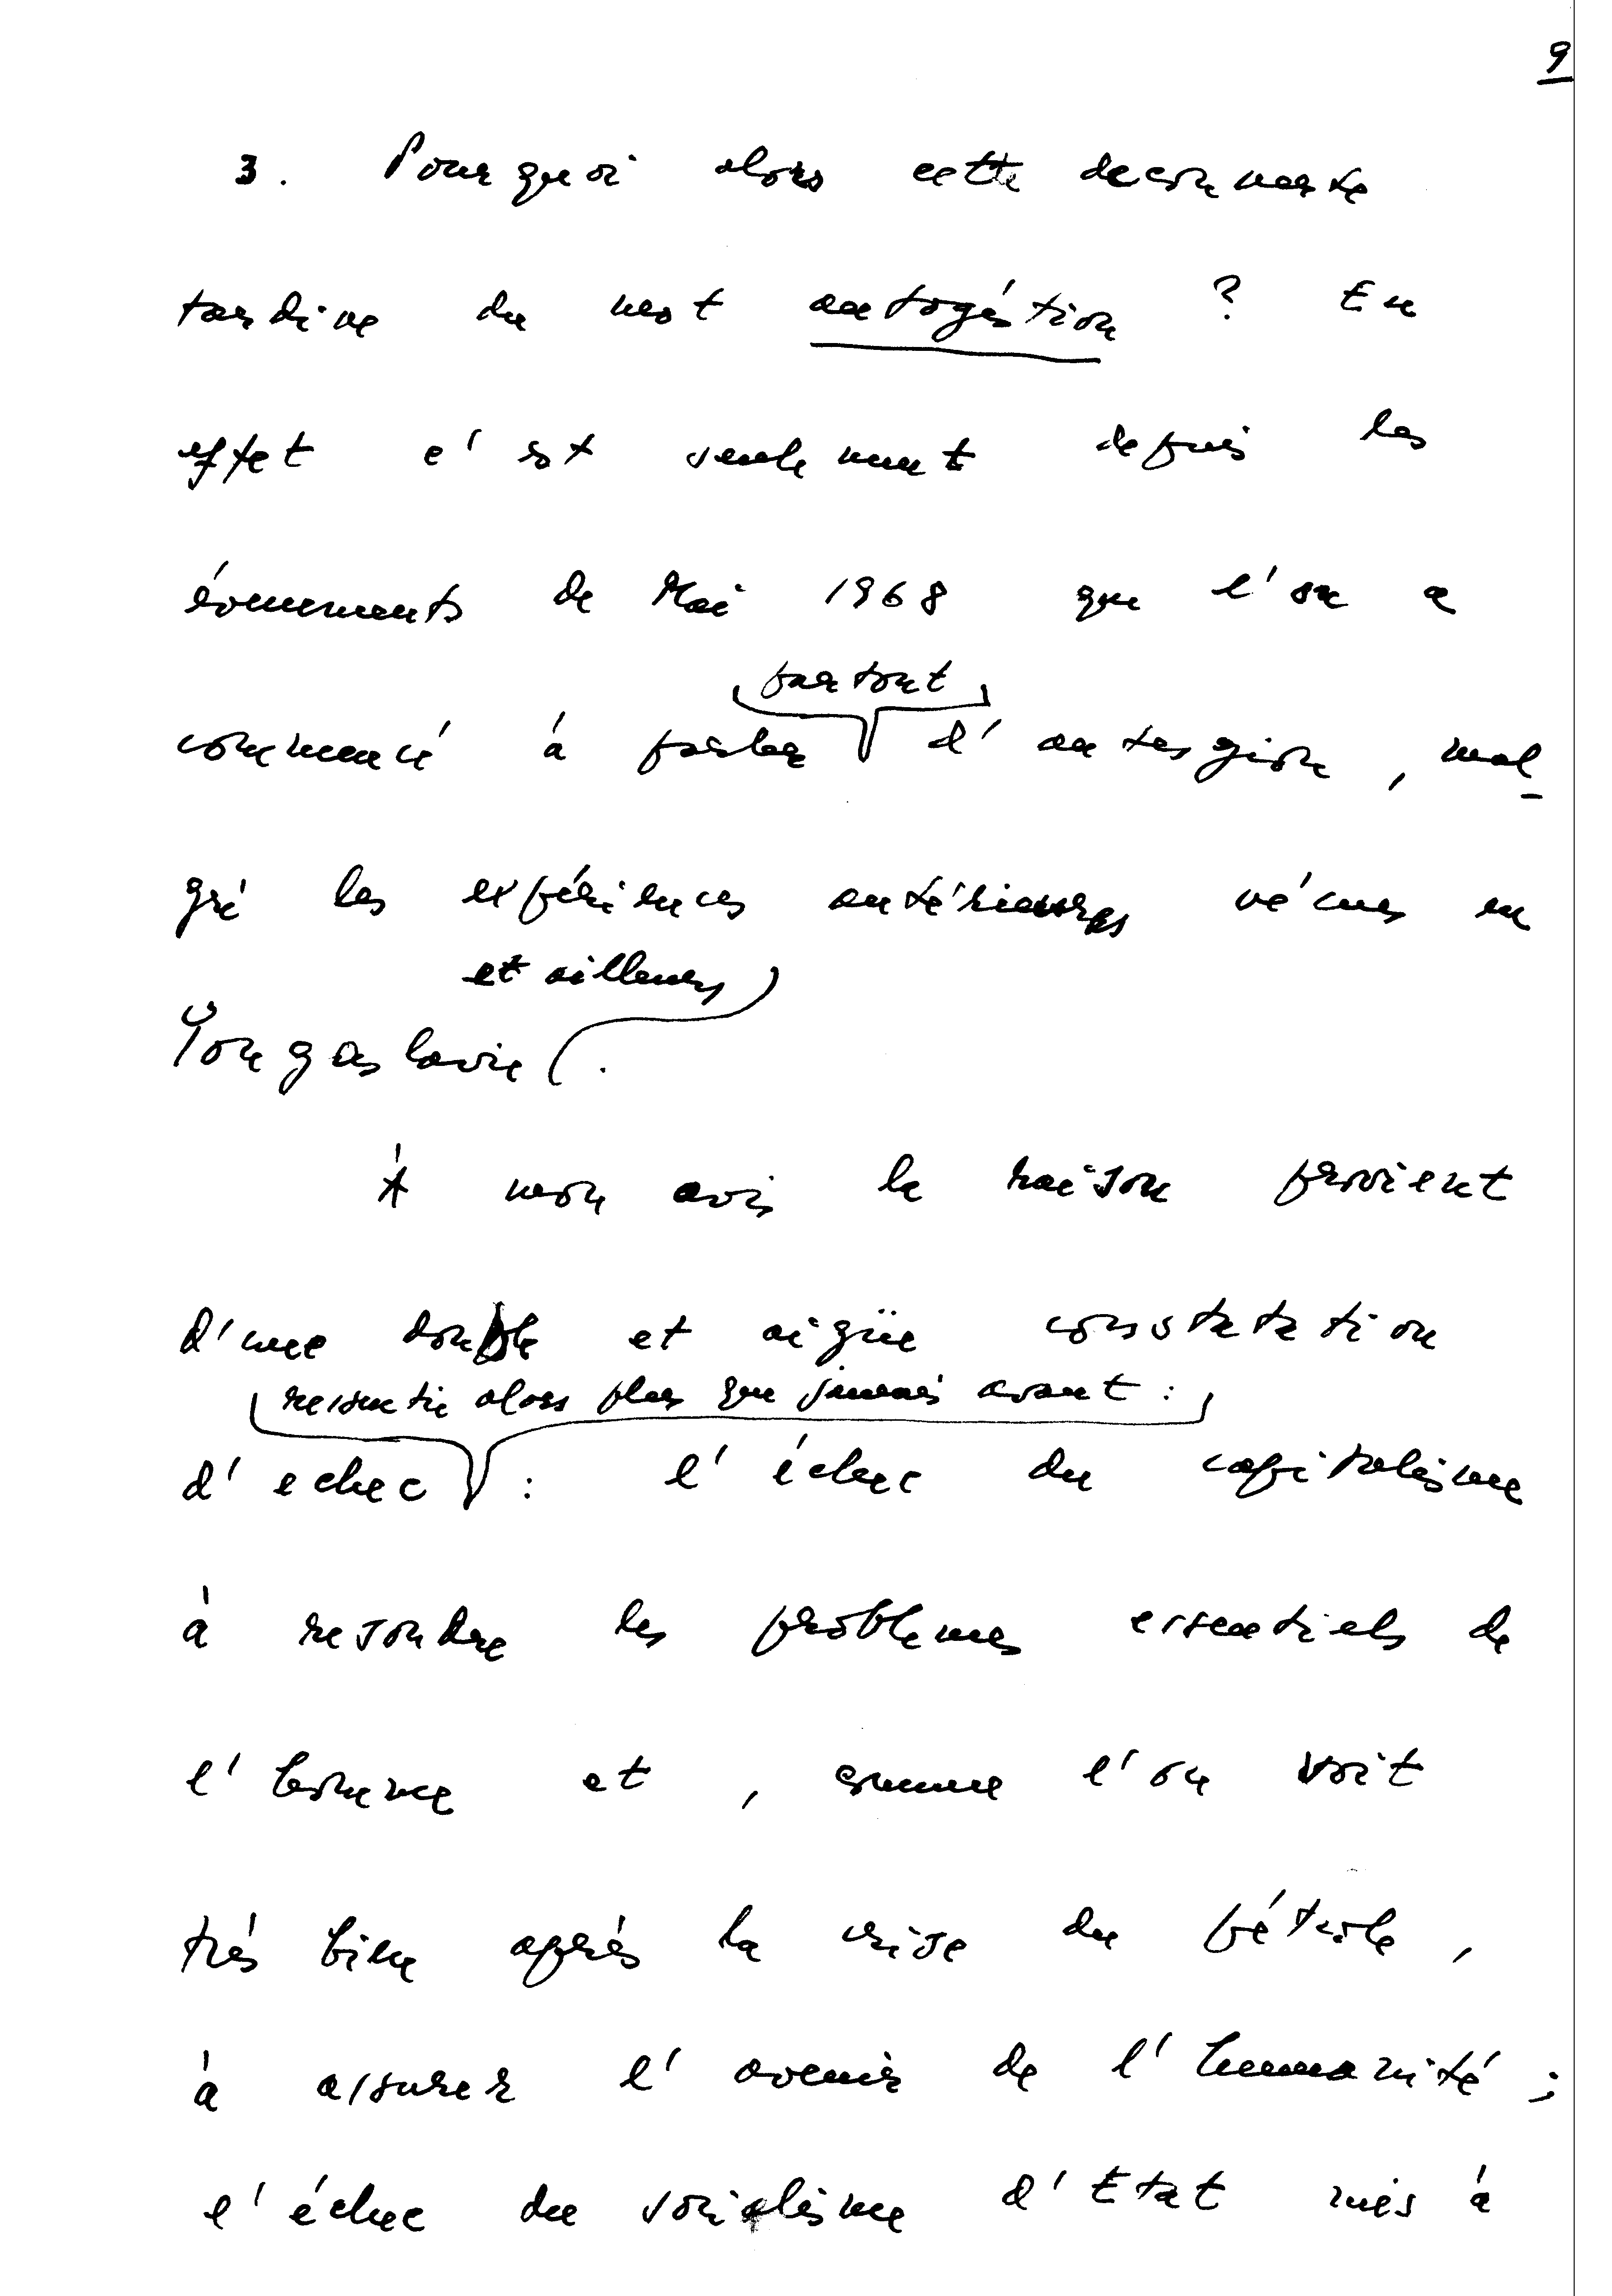 9
3. Pourquoi alors cette decouverte
tardive du mot autogéstion ? En
effet c'est seulement depuis les
évenements de Mai 1968 que l'on a
partout
commencé à parler d'autogestion, mal-
gré les expériences antérieures vécues en
et ailleurs
Yougoslavie .
À mon avis la raison provient
d'une double et aigüe constatation
ressentie alors plus que jamais avant :
d'echec : l'échec du capitalisme
à resoudre les problemes essentiels de
l'homme et , comme l'on voit
très bien après la crise du pétrole ,
à assurer l'avenir de l'humanité ;
l'échec du socialisme d'Etat mis à